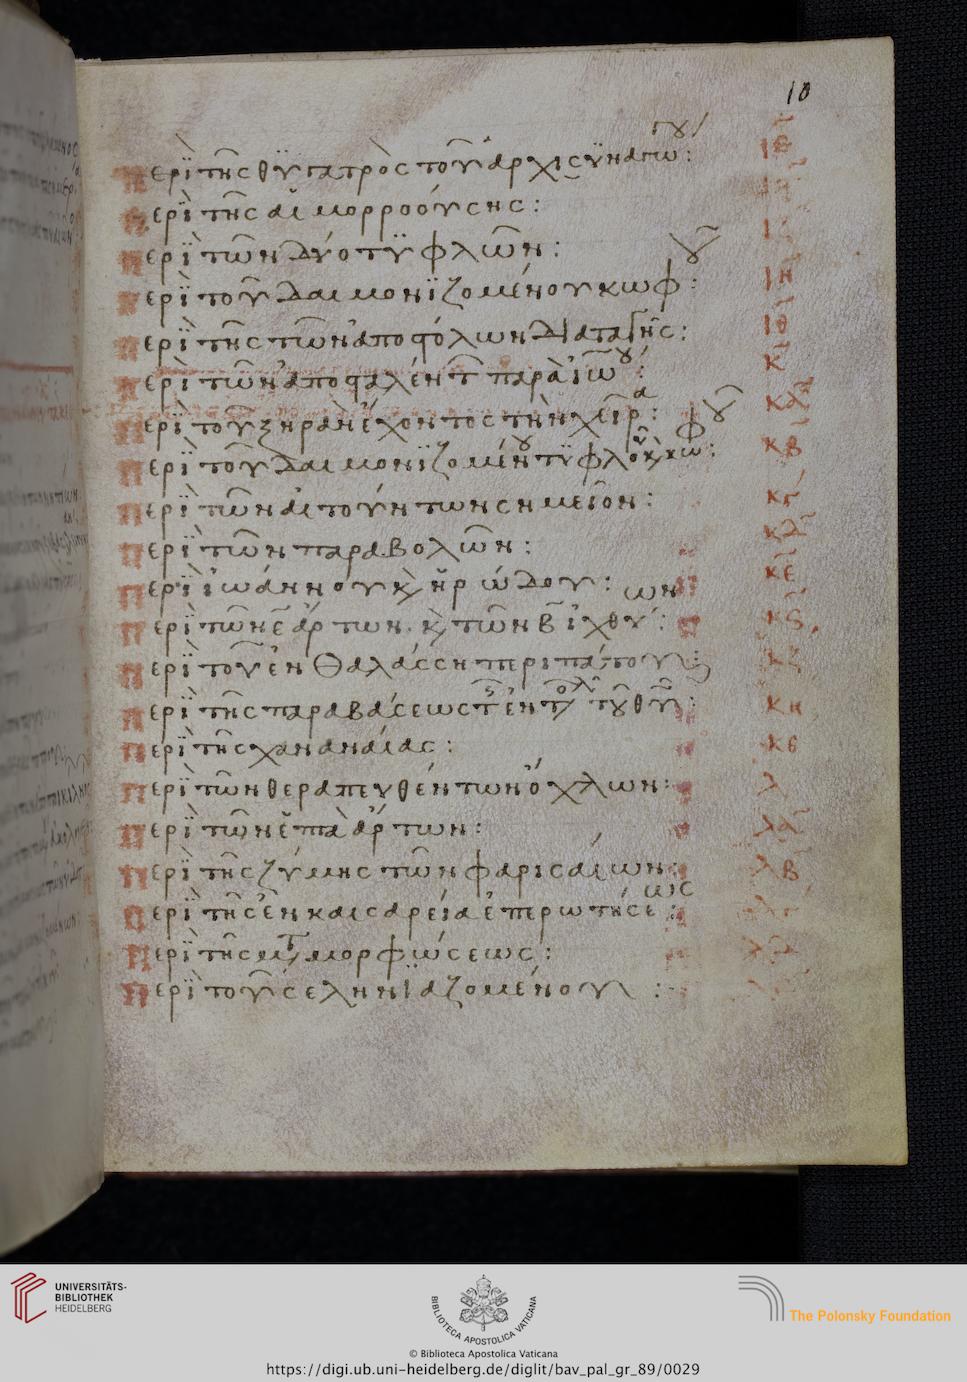 10
Περὶ τῆς θυγατρὸς τοῦ ἀρχισυναγωγου: ιε
Περὶ τῆς αἱμορροούσης: ιϛ
Περὶ τῶν δύο τυφλῶν: ιζ
Περὶ τοῦ δαιμονιζομένου κωφοῦ: ιη
Περὶ τῆς τῶν ἀποστόλων διαταγῆς: ιθ
Περὶ τῶν ἀποσταλέντ παρὰ ἰωου: κ
Περὶ τοῦ ξηρὰν ἔχοντος τὴν χεῖρα: κα
Περὶ τοῦ δαιμονιζομένου τυφλοῦ κ κωφοῦ: κβ
Περὶ τῶν αἰτούντων σημεῖον: κγ
Περὶ τῶν παραβολῶν: κδ
Περὶ ἰωάννου κ ἡρώδου: κε
Περὶ τῶν ε ἄρτων κ τῶν β ἰχθύων: κϛ
Περὶ τοῦ ἐν θαλάσση περιπάτου: κζ
Περὶ τῆς παραβάσεως τ ἐντολ τοῦ θυ: κη
Περὶ τῆς χαναναίας: κθ
Περὶ τῶν θεραπευθέντων ὄχλων: λ
Περὶ τῶν ἑπτὰ ἄρτων: λα
Περὶ τῆς ζύμης τῶν φαρισαίων: λβ
Περὶ τῆς ἐν καισαρεία ἐπερωτήσεως: λγ
Περὶ τῆς μτμορφώσεως: λδ
Περὶ τοῦ σεληνιαζομένου:
UNIVERSITÄTS-
BIBLIOTHEK
HEIDELBERG
BIBLIOTECA APOSTOLICA VATICANA
The Polonsky Foundation
© Biblioteca Apostolica Vaticana
https://digi.ub.uni-heidelberg.de/diglit/bav_pal_gr_89/0029